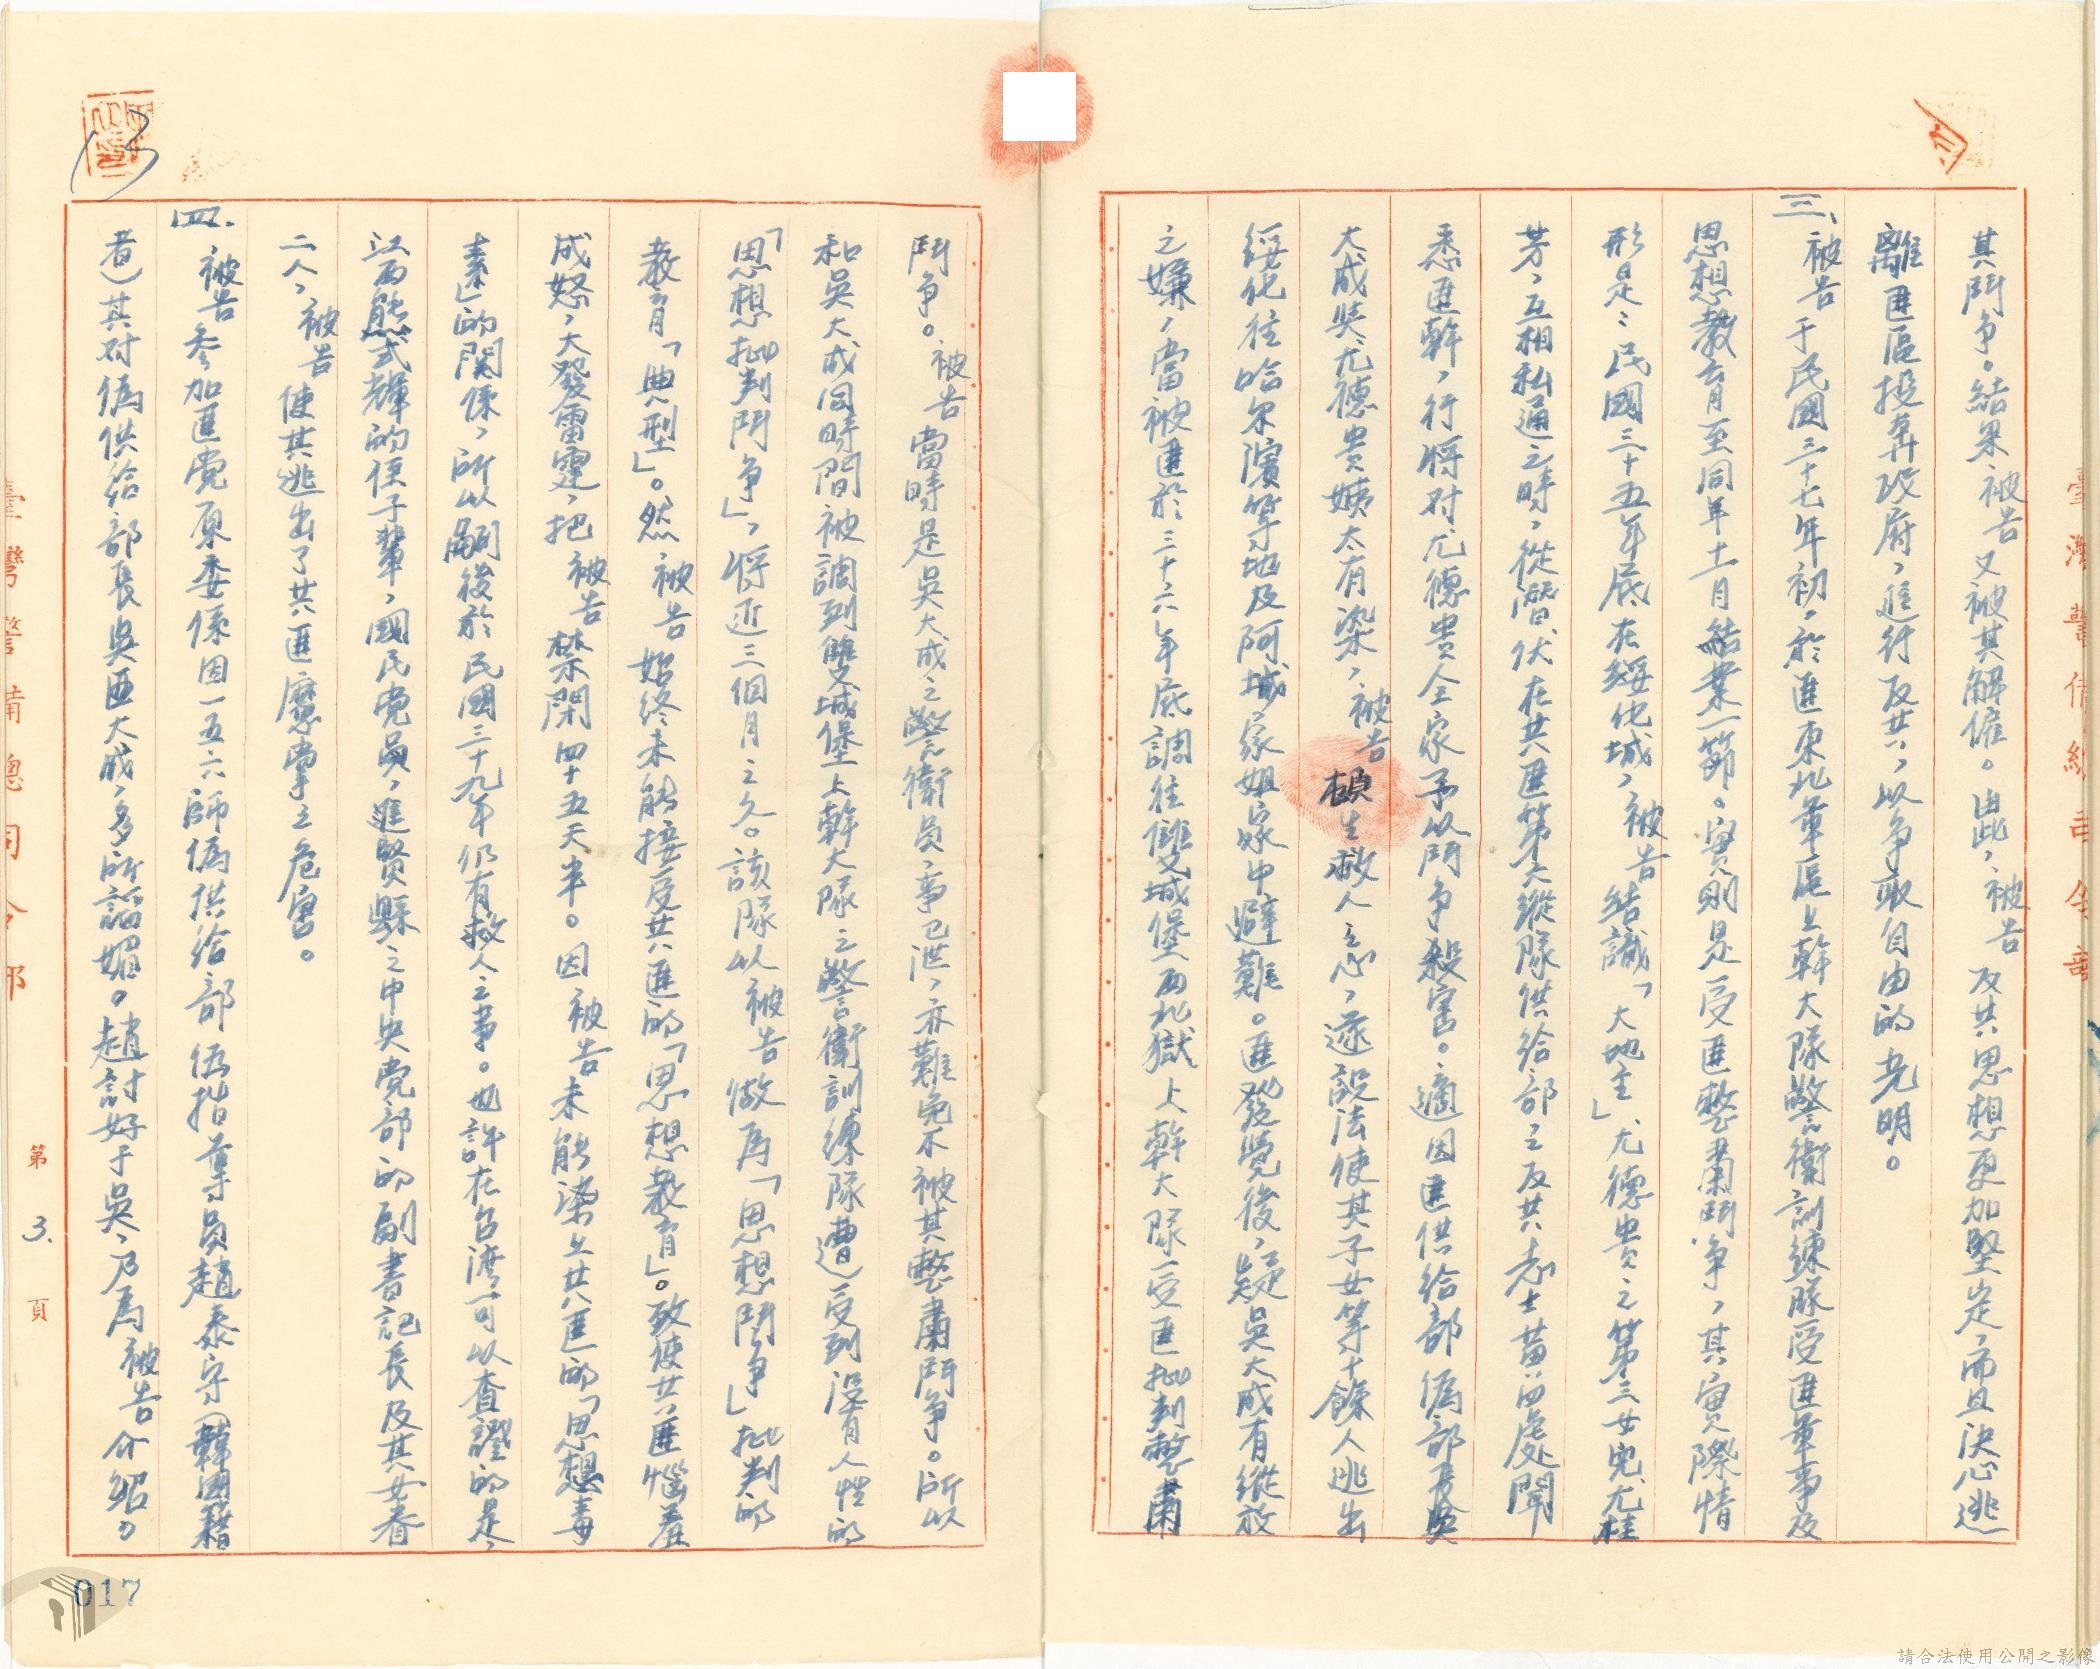 其鬥爭。結果被告又被其解僱。出此，被告反共思想更加堅定，而且決心逃
離匪區投奔政府，進行反共，以爭取自由的光明。
三、被告于民國三十七年初，於匪東北軍區上幹大隊警衛訓練隊受匪軍事及
思想教育至同年十一月結業一節。實則是受匪整肅鬥爭，其實際情
形是：民國三十五年底在綏化城，被告結識「大地主」尤德貴之第三女兒尤桂
芳，互相私通之時，從潛伏在共匪第六縱隊供給部之反共志士苗雨處聞
悉匪幹，行將对尤德貴全家予以鬥爭殺害。適因匪供給部偽部長吳
大成獎尤德貴姨太有染，被告頓生救人之心，遂設法使其子女等十餘人逃出
綏化往哈尔濱等地及阿城家姐家中避難。匪發覺後，疑吳大成有縱放
之嫌，當被匪於三十六年底調往雙城堡西北獄上幹大隊受匪批判整肅
鬥爭。被告當時是吳大成之警衛員，事已洩，亦難免不被其整肅鬥爭。所以
和吳大成同時間被調到雙城堡上幹大隊之警衛訓練隊遭受到沒有人性的
「思想批判鬥爭」，將近三個月之久。該隊以被告做為「思想鬥爭」批判的
教育「典型」。然被告始終未能接受共匪的「思想教育」。致使共匪惱羞
成怒，大發雷霆，把被告禁閉四十五天半。因被告未能染上共匪的「思想毒
素」的関係，所以嗣後於民國三十九年仍有救人之事。也許在台湾可以查證的是，
江西熊式輝的侄子輩，國民党員，進賢縣之中央党部的副書記長及其女眷
二人，被告使其逃出了共匪魔掌之危害。
四、被告參加匪党原委係因一五六師偽供給部伍指導員趙泰守（韓國籍
者）其对偽供給部長吳匪大成，多所諂媚。趙討好于吳，乃為被告介紹。
臺灣警備總司令部
第 3. 頁
017
臺灣警備總司令部
請合法使用公開之影像